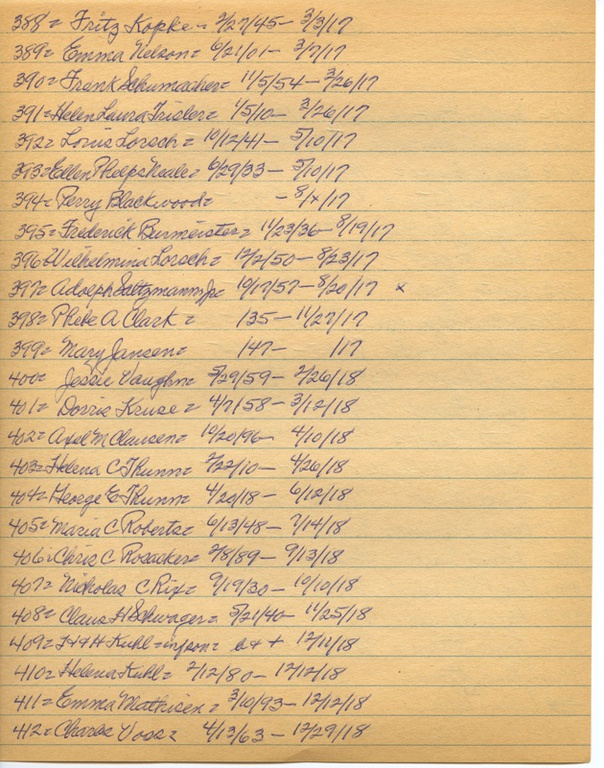 388= Fritz Kopke - 2/27/45 - 3/3/17
389= Emma Nelson= 6/21/01 - 3/7/17
390= Frank Schumacher= 11/5/54 - 3/26/17
391= Helen Laura Trisler= 1/5/10 - 3/26/17
392= Louis Lorsch= 10/12/41 - 5/10/17
393= Ellen Phelps Neale= 6/29/33 - 5/10/17
394= Perry Blackwood= - 8/x/17
395= Frederick Burmeister= 11/23/36 - 8/19/17
396= Wilhelmina Lorsch= 12/2/50 - 8/23/17
397= Adolph Saltzmann Jr= 10/17/57 - 8/20/17 x
398= Phebe A Clark= 135 - 11/27/17
399= Mary Jansen= 147 - 117
400= Jessie Vaughn= 5/29/59 - 2/26/18
401= Dorris Kruse= 4/7/58 - 3/12/18
402= Axel M Clausen= 10/20/96 - 4/10/18
403= Helena C Thunn= 2/22/10 - 4/26/18
404= George E Thunn= 4/20/18 - 6/12/18
405= Maria C Roberts= 6/13/48 - 7/14/18
406= Chris C Rosacker= 2/8/89 - 9/13/18
407= Nicholas C Rix= 9/19/30 - 10/10/18
408= Claus H Schwager= 5/21/40 - 11/25/18
409= H+H Kuhl = inf son= b + + 12/11/18
410= Helena Kuhl= 2/12/80 - 12/12/18
411= Emma Mathisen= 3/10/93 - 12/12/18
412= Charles Voss= 4/13/63 - 12/29/18